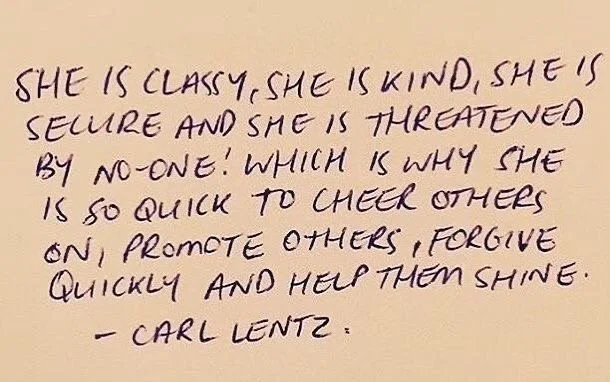 SHE IS CLASSY, SHE IS KIND, SHE IS
SECURE AND SHE IS THREATENED
BY NO-ONE! WHICH IS WHY SHE
IS SO QUICK TO CHEER OTHERS
ON, PROMOTE OTHERS, FORGIVE
QUICKLY AND HELP THEM SHINE.
- CARL LENTZ.